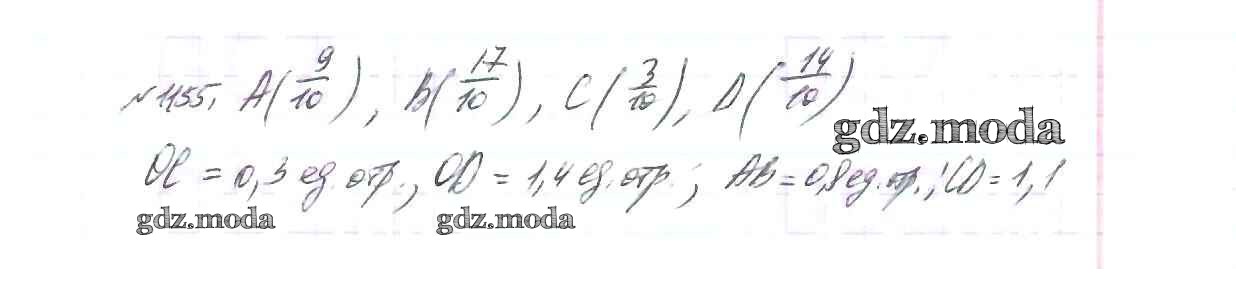 №1155. A(9/10), B(17/10), C(3/10), D(14/10)
gdz.moda
OC = 0,3 ед. отр., OD = 1,4 ед. отр.; AB = 0,8 ед. отр.; CD = 1,1
gdz.moda gdz.moda